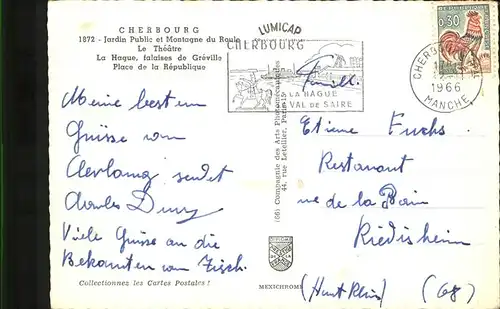 CHERBOURG
1872 - Jardin Public et Montagne du Roule
Le Théâtre
La Hague, falaises de Gréville
Place de la République
LUMICAP
CHERBOURG
LA HAGUE
VAL DE SAIRE
0,30
CHERBOURG
1966
MANCHE
Meine besten
Grüsse von
sendet
Charles
Viele Grüsse an die
Bekannten vom Tisch.
(06) Compagnie des Arts Photomécaniques
44, rue Letellier, Paris-15e
Famille
Etiene Fuchs
Restaurant
rue de la
Riedisheim
(Haut Rhin) (68)
Collectionnez les Cartes Postales !
MEXICHROME